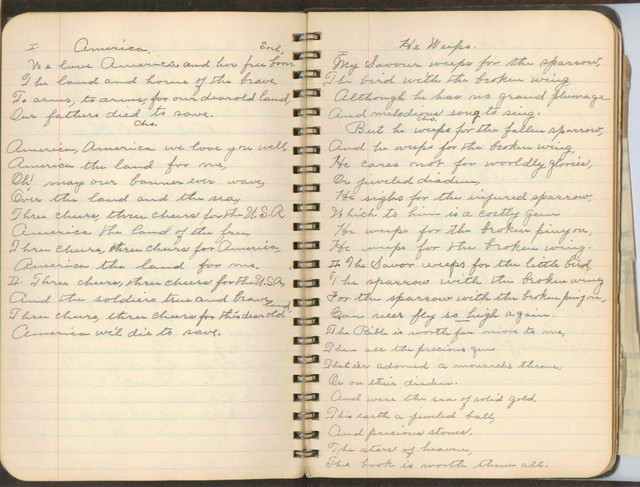 I America.
Soil,
We love America and her free born
The land and home of the brave
To arms, to arms, for our dear old land,
Our fathers died to save.
Cho.
America, America we love you well,
America the land for me,
Oh! may our banner ever wave,
Over the land and the sea,
Three cheers, three cheers for the U.S.A
America the land of the free
Three cheers, three cheers for America,
America the land for me.
II. Three cheers, three cheers for the U.S.A,
And the soldiers true and brave,
land,
Three cheers, three cheers for this dear old
America we'd die to save.
He Weeps.
I
My Saviour weeps for the sparrow,
The bird with the broken wing
Although he has no grand plumage
And melodious song to sing.
Cho.
But he weeps for the fallen sparrow,
And he weeps for the broken wing,
He cares not for worldly glories,
Or jeweled diadem,
He sighs for the injured sparrow,
Which to him is a costly gem
He weeps for the broken pinyon,
He weeps for the broken wing.
II The Savor weeps for the little bird
The sparrow with the broken wing
For the sparrow with the broken pinyon,
Can never fly so high again.
The Bible is worth far more to me,
Than all the precious gems
That ever adorned a monarchs throne,
Or on their diadems.
And were the sea of solid gold,
This earth a jeweled ball,
And precious stones.
The stars of heaven,
This book is worth them all.